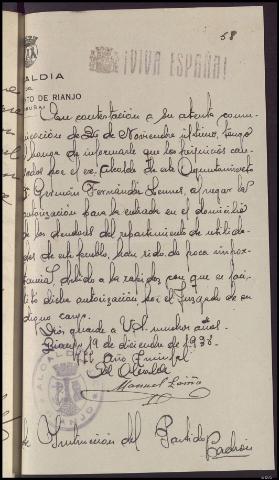 58
ALCALDIA
DE
¡VIVA ESPAÑA!
NTO DE RIANJO
CORUÑA)
Con contestación a su atenta comu-
nicación de 26 de Noviembre último, tengo
el honor de informarle que los perjuicios cau-
sados por el ex-alcalde de este Ayuntamiento
D. Germán Fernández, al negar la
autorización para la entrada en el domicilio
de los deudores del repartimiento de utilida-
des de este pueblo, han sido de poca impor-
tancia, debido a la rapidez con que se faci-
litó dicha autorización por el Juzgado de su
digno cargo.
Dios guarde a V.S. muchos años.
Rianjo, 19 de diciembre de 1936.
Año Triunfal
El Alcalde
Manuel
ALCALDIA
RIANJO
de Instrucción del Partido
Padrón